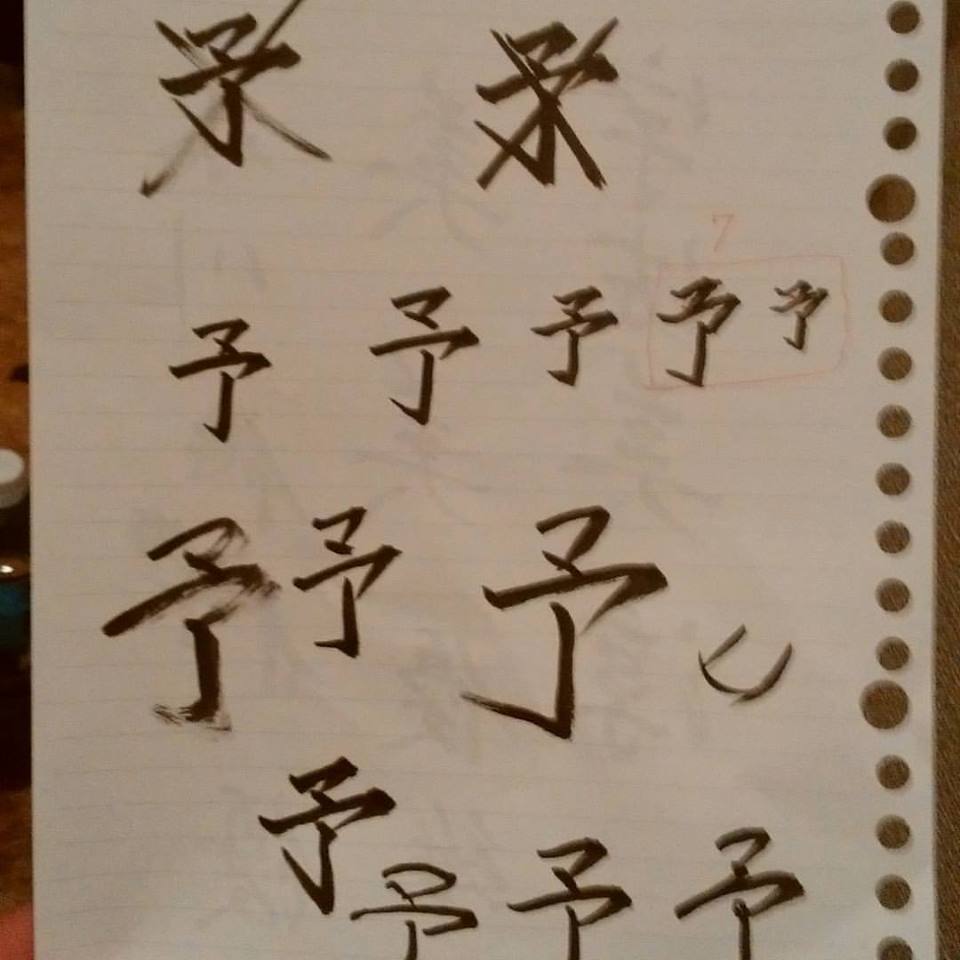 予 予
予 予 予 予 予
7
予 予 予
予 予 予 予